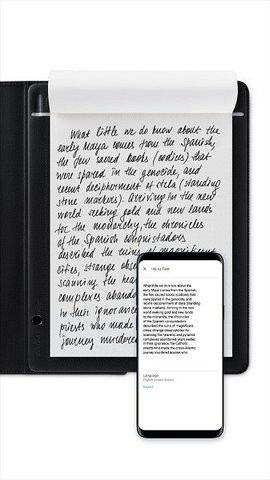 What little we do know about the
early Maya comes from the Spanish,
the few sacred books (codices) that
were spared in the genocide, and
recent decipherment of stela (standing
stone markers). Arriving in the new
world seeking gold and new lands
for the monarchy, the chronicles
of the Spanish conquistadors
described the ruins of magnificent
cities, strange
scanning the
complexes
in their ignorance
priests who made
journey murdered
Ink to Text
What little we do know about the
early Maya comes from the Spanish,
the few sacred books (codices) that
were spared in the genocide, and
recent decipherment of stela (standing
stone markers). Arriving in the new
world seeking gold and new lands
for the monarchy, the chronicles
of the Spanish conquistadors
described the ruins of magnificent
cities, strange observatories for
scanning the heavens and pyramid
complexes abandoned years earlier.
In their ignorance, the Catholic
priests who made the cross-Atlantic
journey murdered anyone who
Language
English (United States)
Export